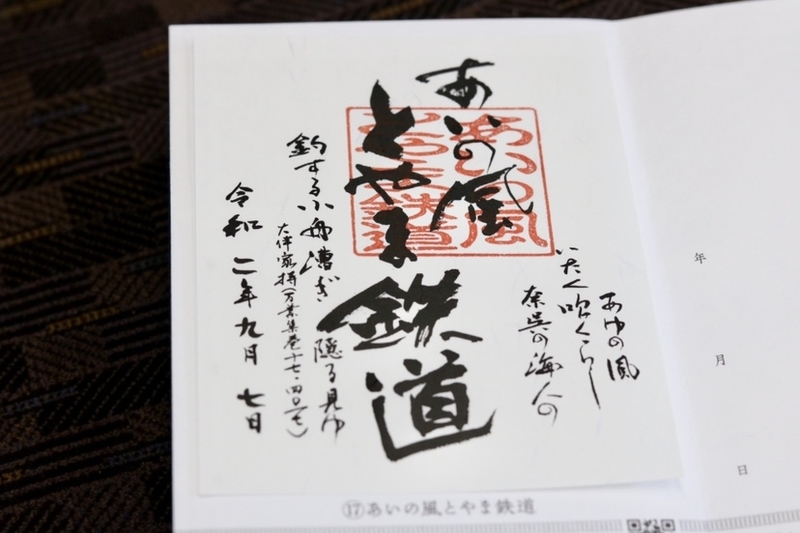 あゆの風
いたく吹くらし
奈呉の海人の
あいの風
とやま鉄道
あいの風
とやま鉄道
釣する小舟漕ぎ隠る見ゆ
大伴家持(万葉集巻十七・四〇一七)
令和二年九月七日
⑰あいの風とやま鉄道
年
月
日